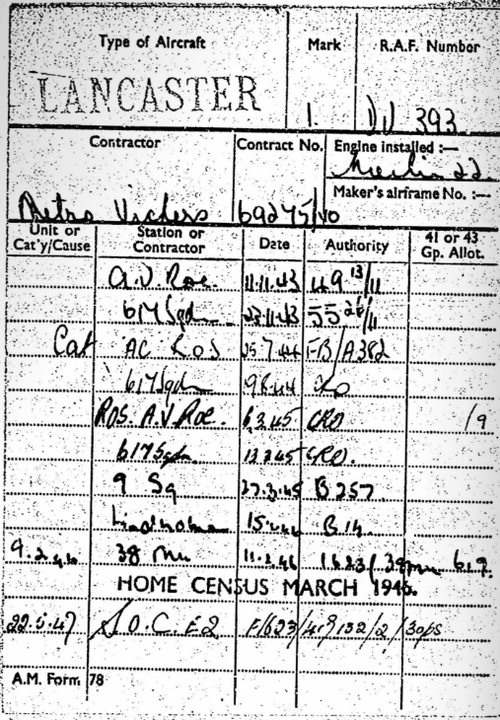 Type of Aircraft Mark R.A.F. Number
LANCASTER 1. 393
Contractor Contract No. Engine installed :—
Merlin 22
Maker's airframe No. :—
Metro Vickers 69275/40
Unit or Cat'y/Cause Station or Contractor Date Authority 41 or 43 Gp. Allot.
A.V. Roe. 11.11.43 49 13/11
617 Sqdn 55 26/11
Cat AC ROS 25.7.44 FB/A382
617 Sqdn
ROS. A.V. Roe. 6.3.45 CRO /9
617 Sqdn. CRO.
9 Sq 27.3.45 B257
Lindholme B14.
38 MU 11.2.46 1623/38mu
HOME CENSUS MARCH 1946.
22.5.47 S.O.C.
A.M. Form 78